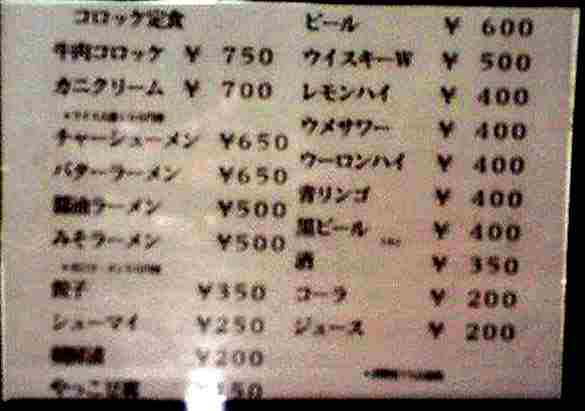 コロッケ定食
牛肉コロッケ ¥ 750
カニクリーム ¥ 700
チャーシューメン ¥650
バターラーメン ¥650
醤油ラーメン ¥500
みそラーメン ¥500
餃子 ¥350
シューマイ ¥250
¥200
やっこ豆腐
ビール ¥ 600
ウイスキーW ¥ 500
レモンハイ ¥ 400
ウメサワー ¥ 400
ウーロンハイ ¥ 400
青リンゴ ¥ 400
黒ビール ¥ 400
酒 ¥ 350
コーラ ¥ 200
ジュース ¥ 200